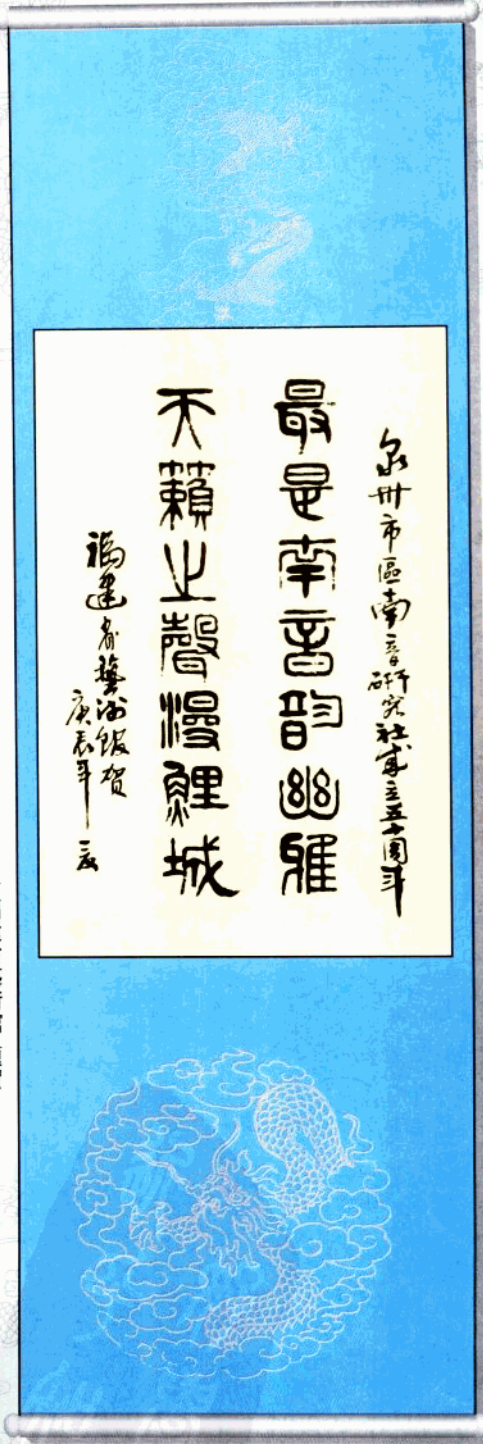 泉州市區南音研究社成立五十周年
最是南音韵幽雅
天籟之聲漫鯉城
福建省藝術館賀
庚辰年夏